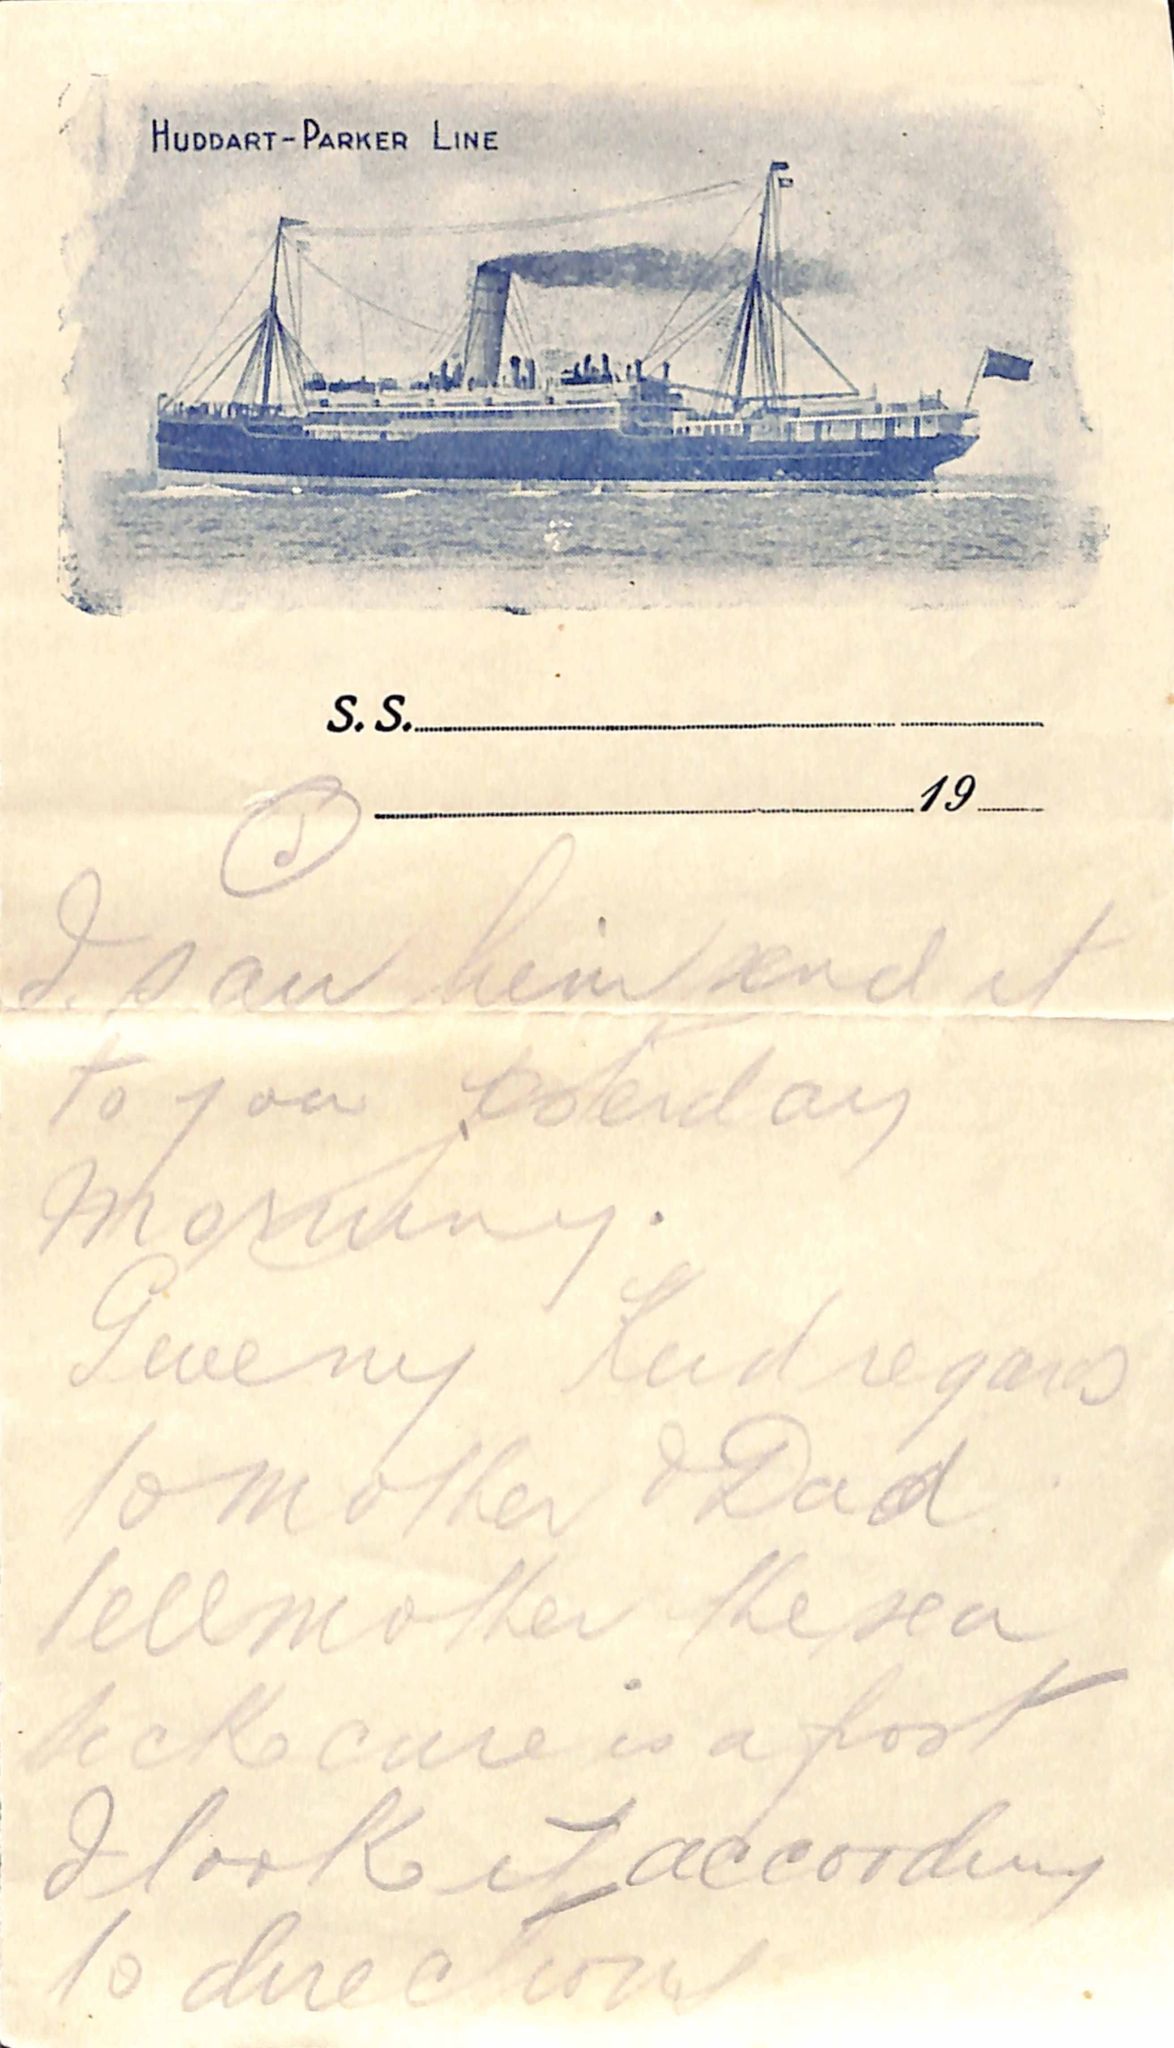 HUDDART-PARKER LINE
S.S.
19
I saw him send it
to you yesterday
Morning.
Give my Kind regards
to mother & Dad
tell mother the sea
sick cure is a frost
I took it according
to directions